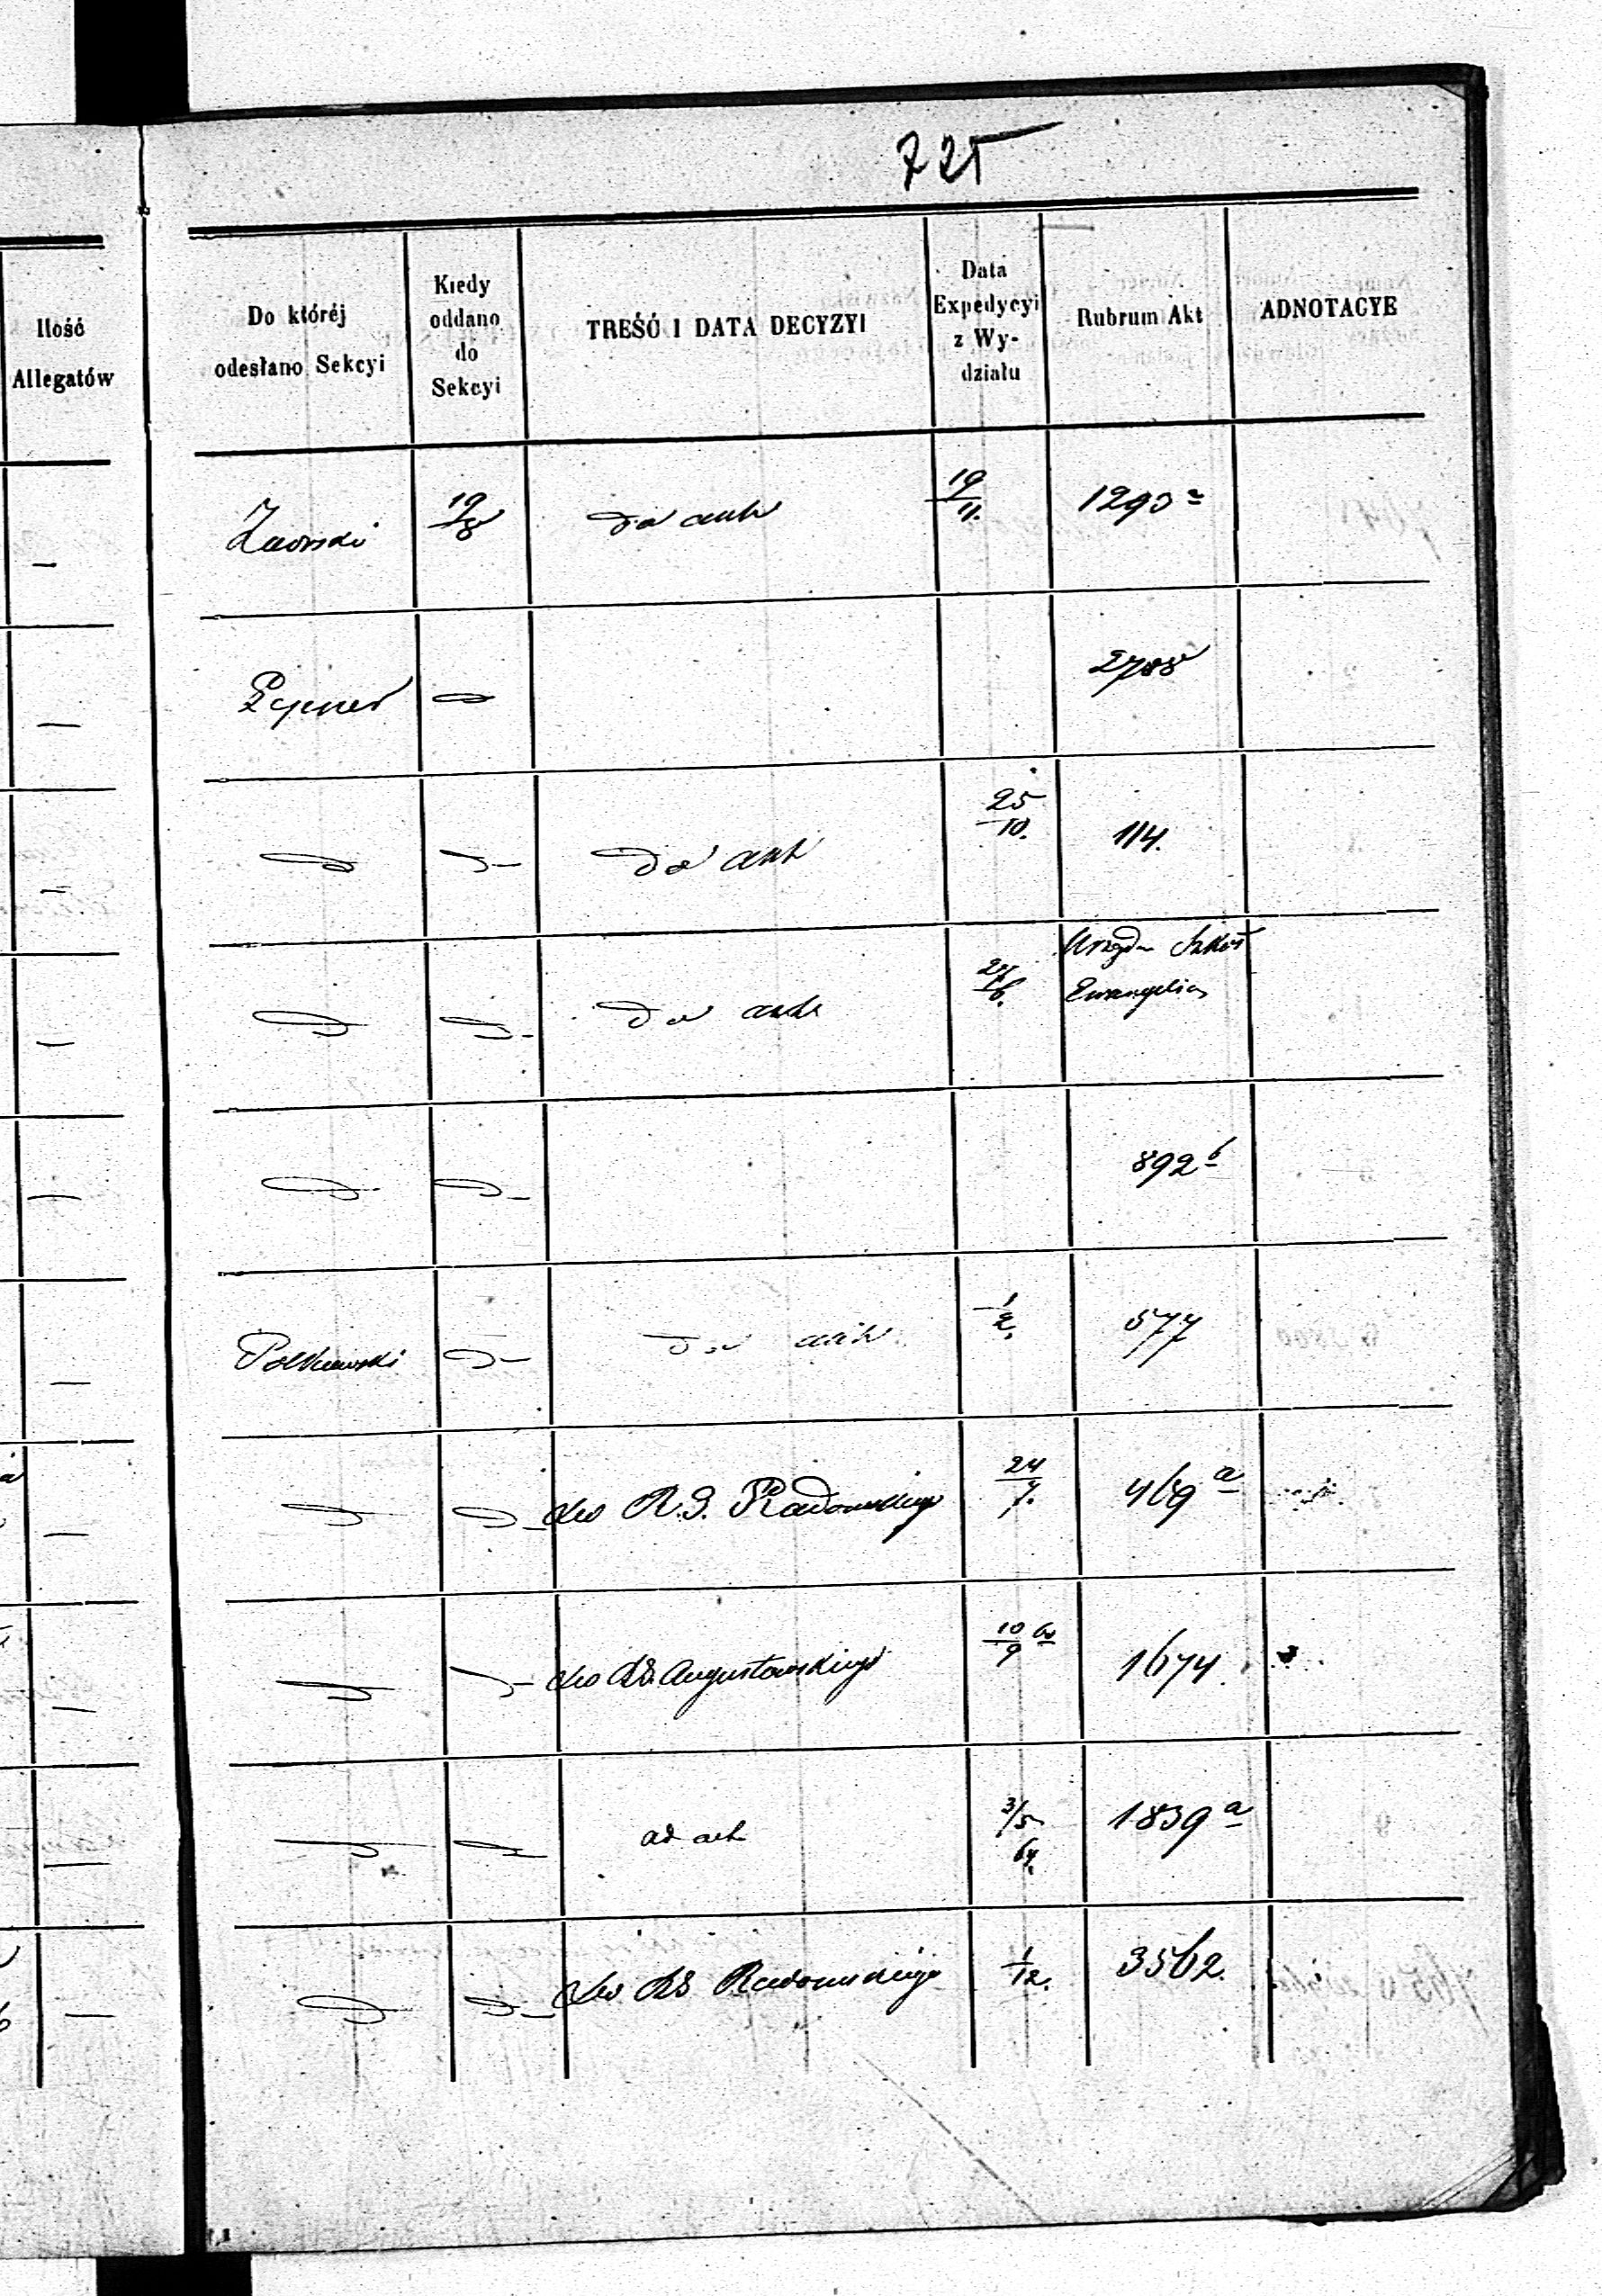 725
Ilość
Allegatów
Do któréj
odesłano Sekcyi
Kiedy
oddano
do
Sekcyi
TREŚĆ I DATA DECYZYI
Data
Expedycyi
z Wy-
działu
Rubrum Akt
ADNOTACYE
19/8 do akt 19/11. 1293 a
2788
do akt 25/10. 114.
do akt 27/6. Urządz Szkół
Ewangelic
892 b
do akt 1/2. 577
do R. G. Radomskiego 24/7. 469 a
do RG Augustowskiego 10/9 64 1674.
ad act 3/5 64. 1839 a
do RG Radomskiego 1/12. 3562.